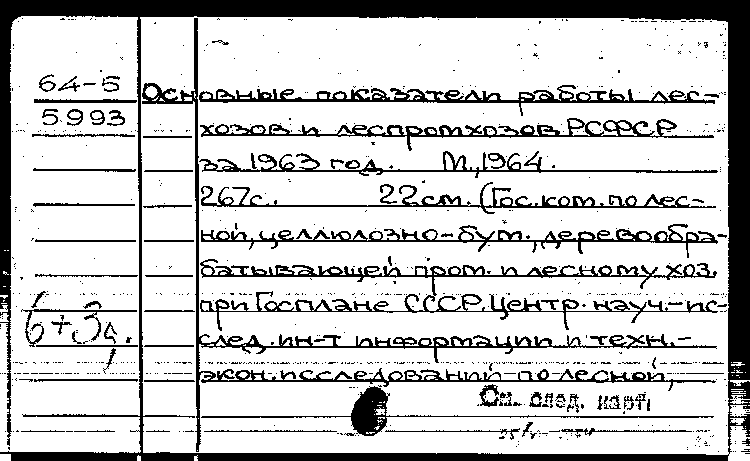 64-5
5993
Основные показатели работы лес-
хозов и леспромхозов РСФСР
за 1963 год. М., 1964.
267с. 22см. (Гос. ком. по лес-
ной, целлюлозно-бум., деревообра-
батывающей пром. и лесному хоз.
при Госплане СССР. Центр. науч.-ис-
след. ин-т информации и техн.-
экон. исследований по лесной,
6+3д.
См. след. карт.